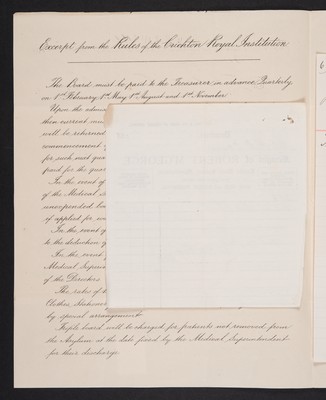 Excerpt from the Rules of the Crichton Royal Institution
The Board must be paid to the Treasurer in advance Quarterly
on 1st February, 1st May, 1st August and 1st November
Upon the
then current,
will be returned
commencement
for such next
paid for the
In the event of
of the Medical
unexpended
if applied for
In the event of
to the deduction of
In the event
Medical
of the Directors
The rates of
Clothes,
by special arrangement
Triple board will be charged for patients not removed from
the Asylum at the date fixed by the Medical Superintendent
for their discharge